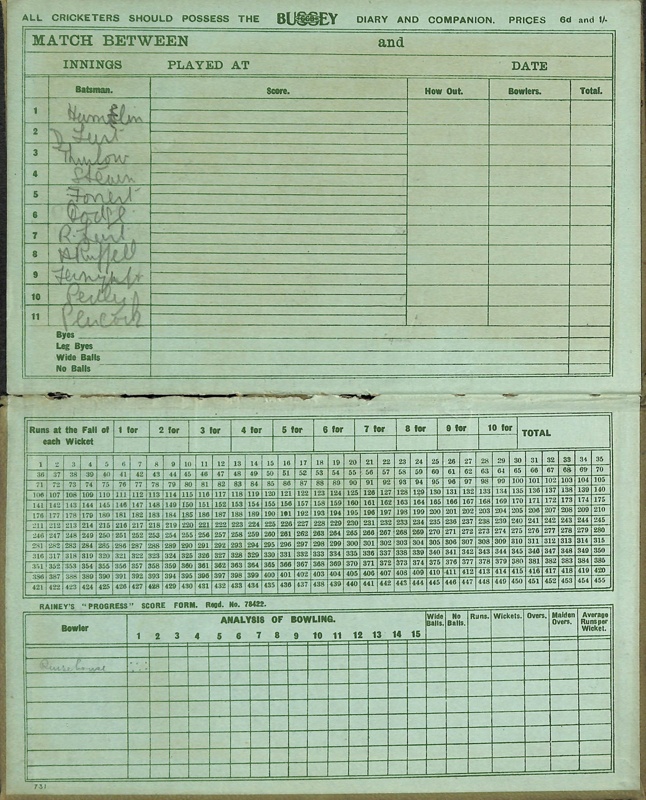 ALL CRICKETERS SHOULD POSSESS THE BUSSEY DIARY AND COMPANION. PRICES 6d and 1/-
MATCH BETWEEN and
INNINGS PLAYED AT DATE
Batsman. Score. How Out. Bowlers. Total.
1
2
3 Thurlow
4
5 Forrest
6
7
8
9
10
11 Peacock
Byes
Leg Byes
Wide Balls
No Balls
Runs at the Fall of each Wicket 1 for 2 for 3 for 4 for 5 for 6 for 7 for 8 for 9 for 10 for TOTAL
1 2 3 4 5 6 7 8 9 10 11 12 13 14 15 16 17 18 19 20 21 22 23 24 25 26 27 28 29 30 31 32 33 34 35
36 37 38 39 40 41 42 43 44 45 46 47 48 49 50 51 52 53 54 55 56 57 58 59 60 61 62 63 64 65 66 67 68 69 70
71 72 73 74 75 76 77 78 79 80 81 82 83 84 85 86 87 88 89 90 91 92 93 94 95 96 97 98 99 100 101 102 103 104 105
106 107 108 109 110 111 112 113 114 115 116 117 118 119 120 121 122 123 124 125 126 127 128 129 130 131 132 133 134 135 136 137 138 139 140
141 142 143 144 145 146 147 148 149 150 151 152 153 154 155 156 157 158 159 160 161 162 163 164 165 166 167 168 169 170 171 172 173 174 175
176 177 178 179 180 181 182 183 184 185 186 187 188 189 190 191 192 193 194 195 196 197 198 199 200 201 202 203 204 205 206 207 208 209 210
211 212 213 214 215 216 217 218 219 220 221 222 223 224 225 226 227 228 229 230 231 232 233 234 235 236 237 238 239 240 241 242 243 244 245
246 247 248 249 250 251 252 253 254 255 256 257 258 259 260 261 262 263 264 265 266 267 268 269 270 271 272 273 274 275 276 277 278 279 280
281 282 283 284 285 286 287 288 289 290 291 292 293 294 295 296 297 298 299 300 301 302 303 304 305 306 307 308 309 310 311 312 313 314 315
316 317 318 319 320 321 322 323 324 325 326 327 328 329 330 331 332 333 334 335 336 337 338 339 340 341 342 343 344 345 346 347 348 349 350
351 352 353 354 355 356 357 358 359 360 361 362 363 364 365 366 367 368 369 370 371 372 373 374 375 376 377 378 379 380 381 382 383 384 385
386 387 388 389 390 391 392 393 394 395 396 397 398 399 400 401 402 403 404 405 406 407 408 409 410 411 412 413 414 415 416 417 418 419 420
421 422 423 424 425 426 427 428 429 430 431 432 433 434 435 436 437 438 439 440 441 442 443 444 445 446 447 448 449 450 451 452 453 454 455
RAINEY'S "PROGRESS" SCORE FORM. Regd. No. 78422.
Bowler ANALYSIS OF BOWLING. Wide Balls. No Balls. Runs. Wickets. Overs. Maiden Overs. Average Runs per Wicket.
1 2 3 4 5 6 7 8 9 10 11 12 13 14 15
751